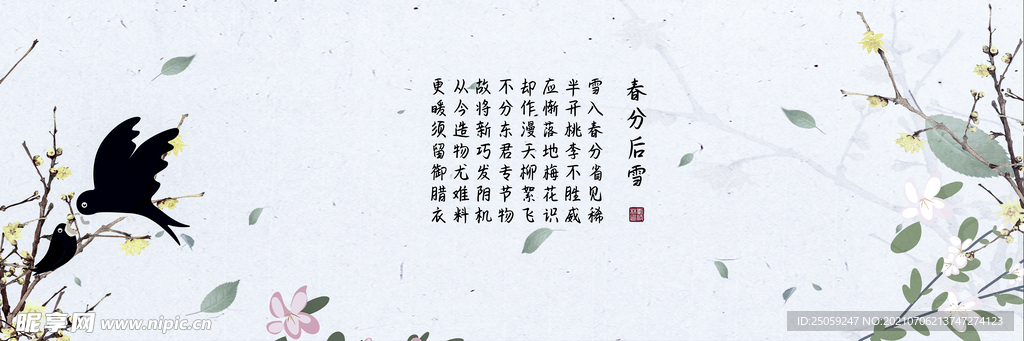 春分后雪
雪入春分省见稀
半开桃李不胜威
应惭落地梅花识
却作漫天柳絮飞
不分东君专节物
故将新巧发阴机
从今造物尤难料
更暖须留御腊衣
昵享网 www.nipic.cn
ID:25059247 NO:20210706213747274123